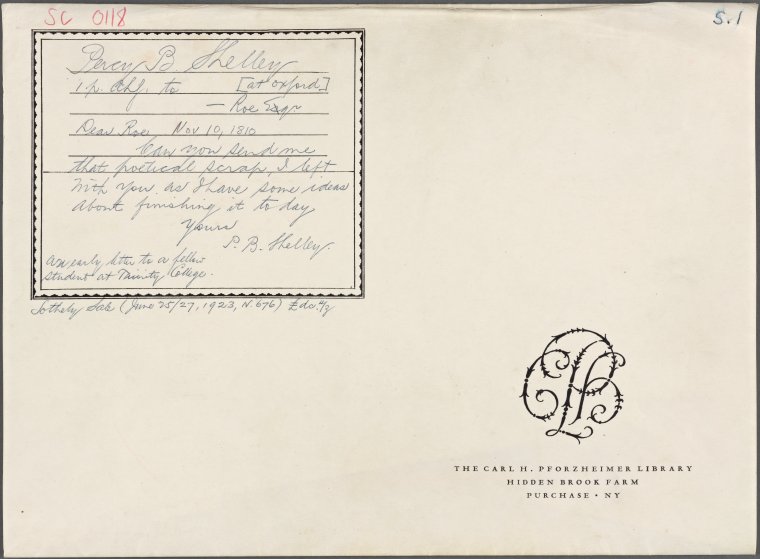 SC 0118
S.1
Percy B Shelley
1 p. to [at Oxford]
— Roe Esqr.
Dear Roe, Nov 10, 1810
Can you send me
that poetical scrap, I left
with you as I have some ideas
about finishing it to day
Yours
P. B. Shelley
an early letter to a fellow
student at Trinity College.
Sotheby Sale (June 25/27, 1923, N. 676)
THE CARL H. PFORZHEIMER LIBRARY
HIDDEN BROOK FARM
PURCHASE • NY